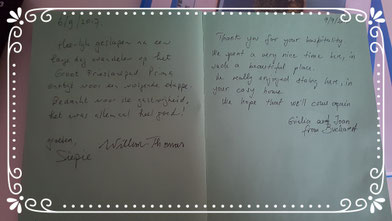 6/9/2017
Heerlijk geslapen na een
lange dag wandelen op het
Groot Frieslandpad. Prima
ontbijt voor een volgende etappe.
Bedankt voor de gastvrijheid,
het was allemaal heel goed!
Groeten,
Siepie
Willem-Thomas
Thank you for your hospitality
We spent a very nice time here, in
such a beautiful place.
We really enjoyed staying here, in
your cosy home.
We hope that we'll come again
Giulia and Ioan
from Bucharest